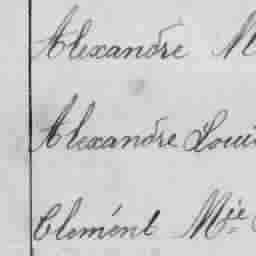 Alexandre M
Alexandre Loui
Clément Mie